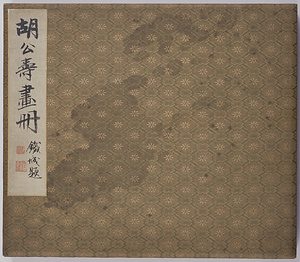 胡公壽畫冊
鐵城題